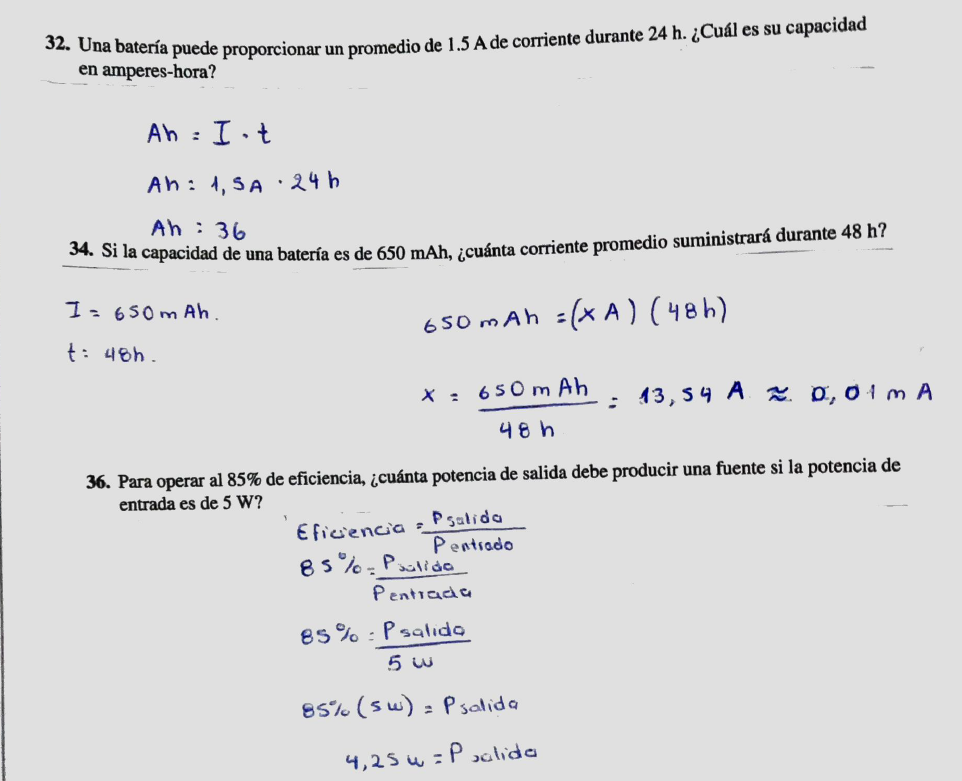 32. Una batería puede proporcionar un promedio de 1.5 A de corriente durante 24 h. ¿Cuál es su capacidad
en amperes-hora?
Ah = I · t
Ah : 1,5A · 24 h
Ah : 36
34. Si la capacidad de una batería es de 650 mAh, ¿cuánta corriente promedio suministrará durante 48 h?
I = 650 mAh.
t: 48h.
650 mAh = (x A) (48h)
x = 650 mAh / 48 h = 13,54 A ≈ 0,01 m A
36. Para operar al 85% de eficiencia, ¿cuánta potencia de salida debe producir una fuente si la potencia de
entrada es de 5 W?
Eficiencia = P salida / P entrado
85% = P salida / P entrada
85% = P salida / 5 w
85% (5 w) = P salida
4,25 w = P salida